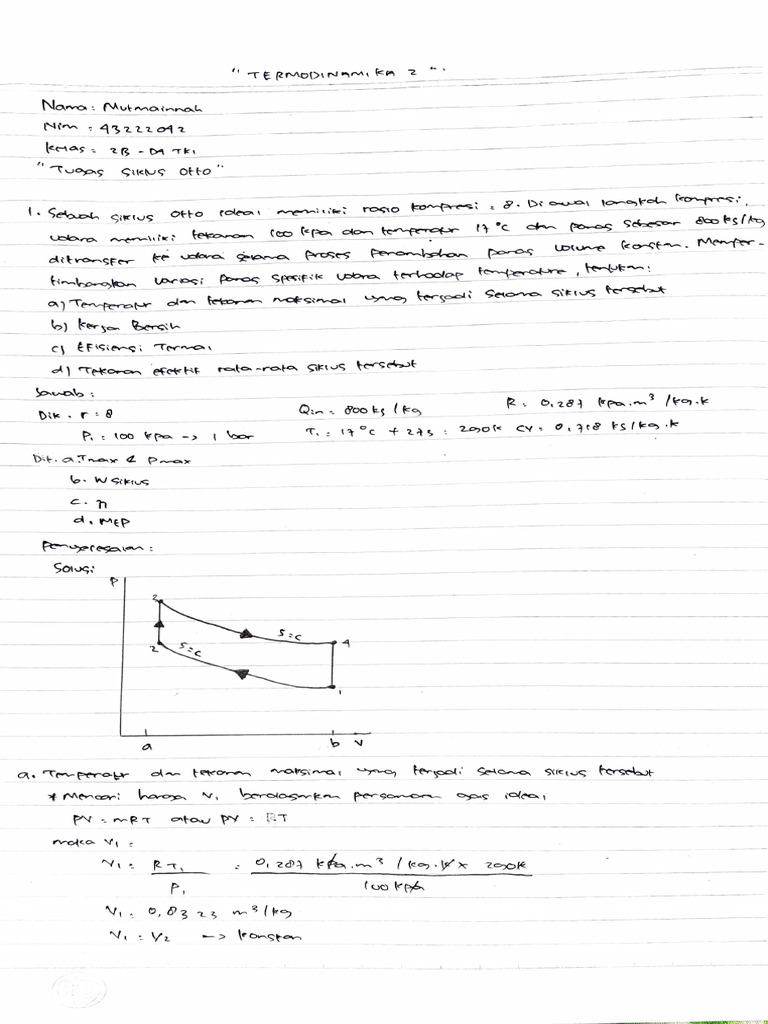 "TERMODINAMIKA 2".
Nama: Mutmainnah
Nim : 43222042
Kelas : 2B - D4 TKI
"Tugas Siklus Otto"
1. Sebuah siklus otto ideal memiliki rasio kompresi = 8. Di awal langkah kompresi,
udara memiliki tekanan 100 kpa dan temperatur 17°C dan panas sebesar 800 kJ/kg
ditransfer ke udara selama proses penambahan panas volume konstan. Memper-
timbangkan variasi panas spesifik udara terhadap temperature, tentukan:
a) Temperatur dan tekanan maksimal yang terjadi selama siklus tersebut
b) Kerja Bersih
c) Efisiensi Termal
d) Tekanan efektif rata-rata siklus tersebut
Jawab :
Dik . r = 8 Qin = 800 kJ / kg R = 0,287 kpa.m³ /kg.k
P₁ = 100 kpa -> 1 bar T₁ = 17°C + 273 = 290k CV = 0,718 kJ/kg.k
Dit. a. Tmax & Pmax
b. W siklus
c. η
d. MEP
Penyelesaian :
Solusi
P
2
S=c
4
2
S=c
1
a
b V
a. Temperatur dan tekanan maksimal yang terjadi selama siklus tersebut
* Mencari harga V₁ berdasarkan persamaan gas ideal
PV = mRT atau PV = RT
maka V₁ =
V₁ = RT₁ / P₁ = 0,287 kpa.m³ / kg.k x 290k / 100 kpa
V₁ = 0,8323 m³/kg
V₁ = V₂ -> konstan